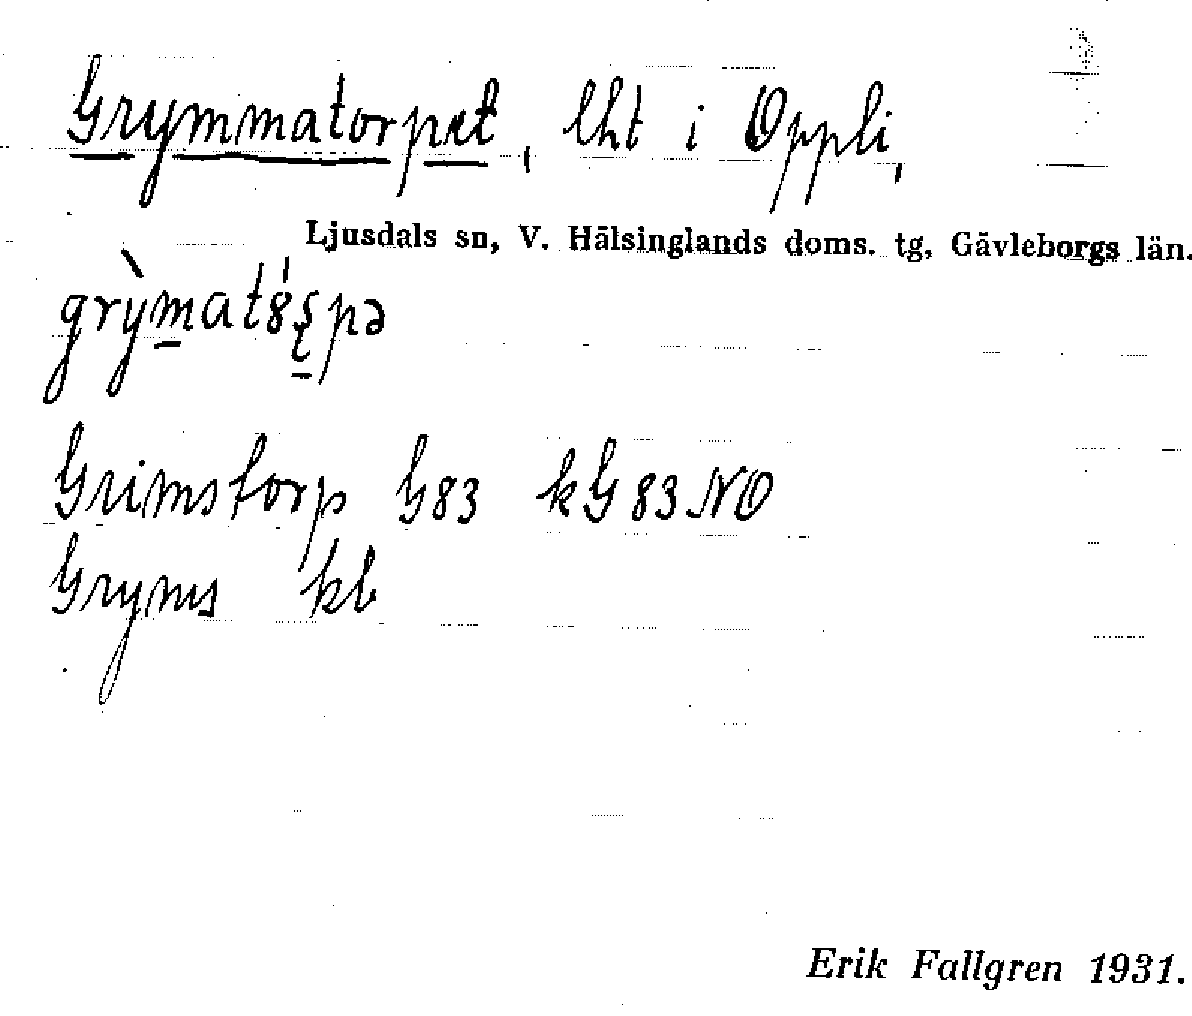 Grymmatorpet, lht i Oppli,
Ljusdals sn, V. Hälsinglands doms. tg, Gävleborgs län.
Grimstorp G83 kG 83 NO
Gryms kb
Erik Fallgren 1931.